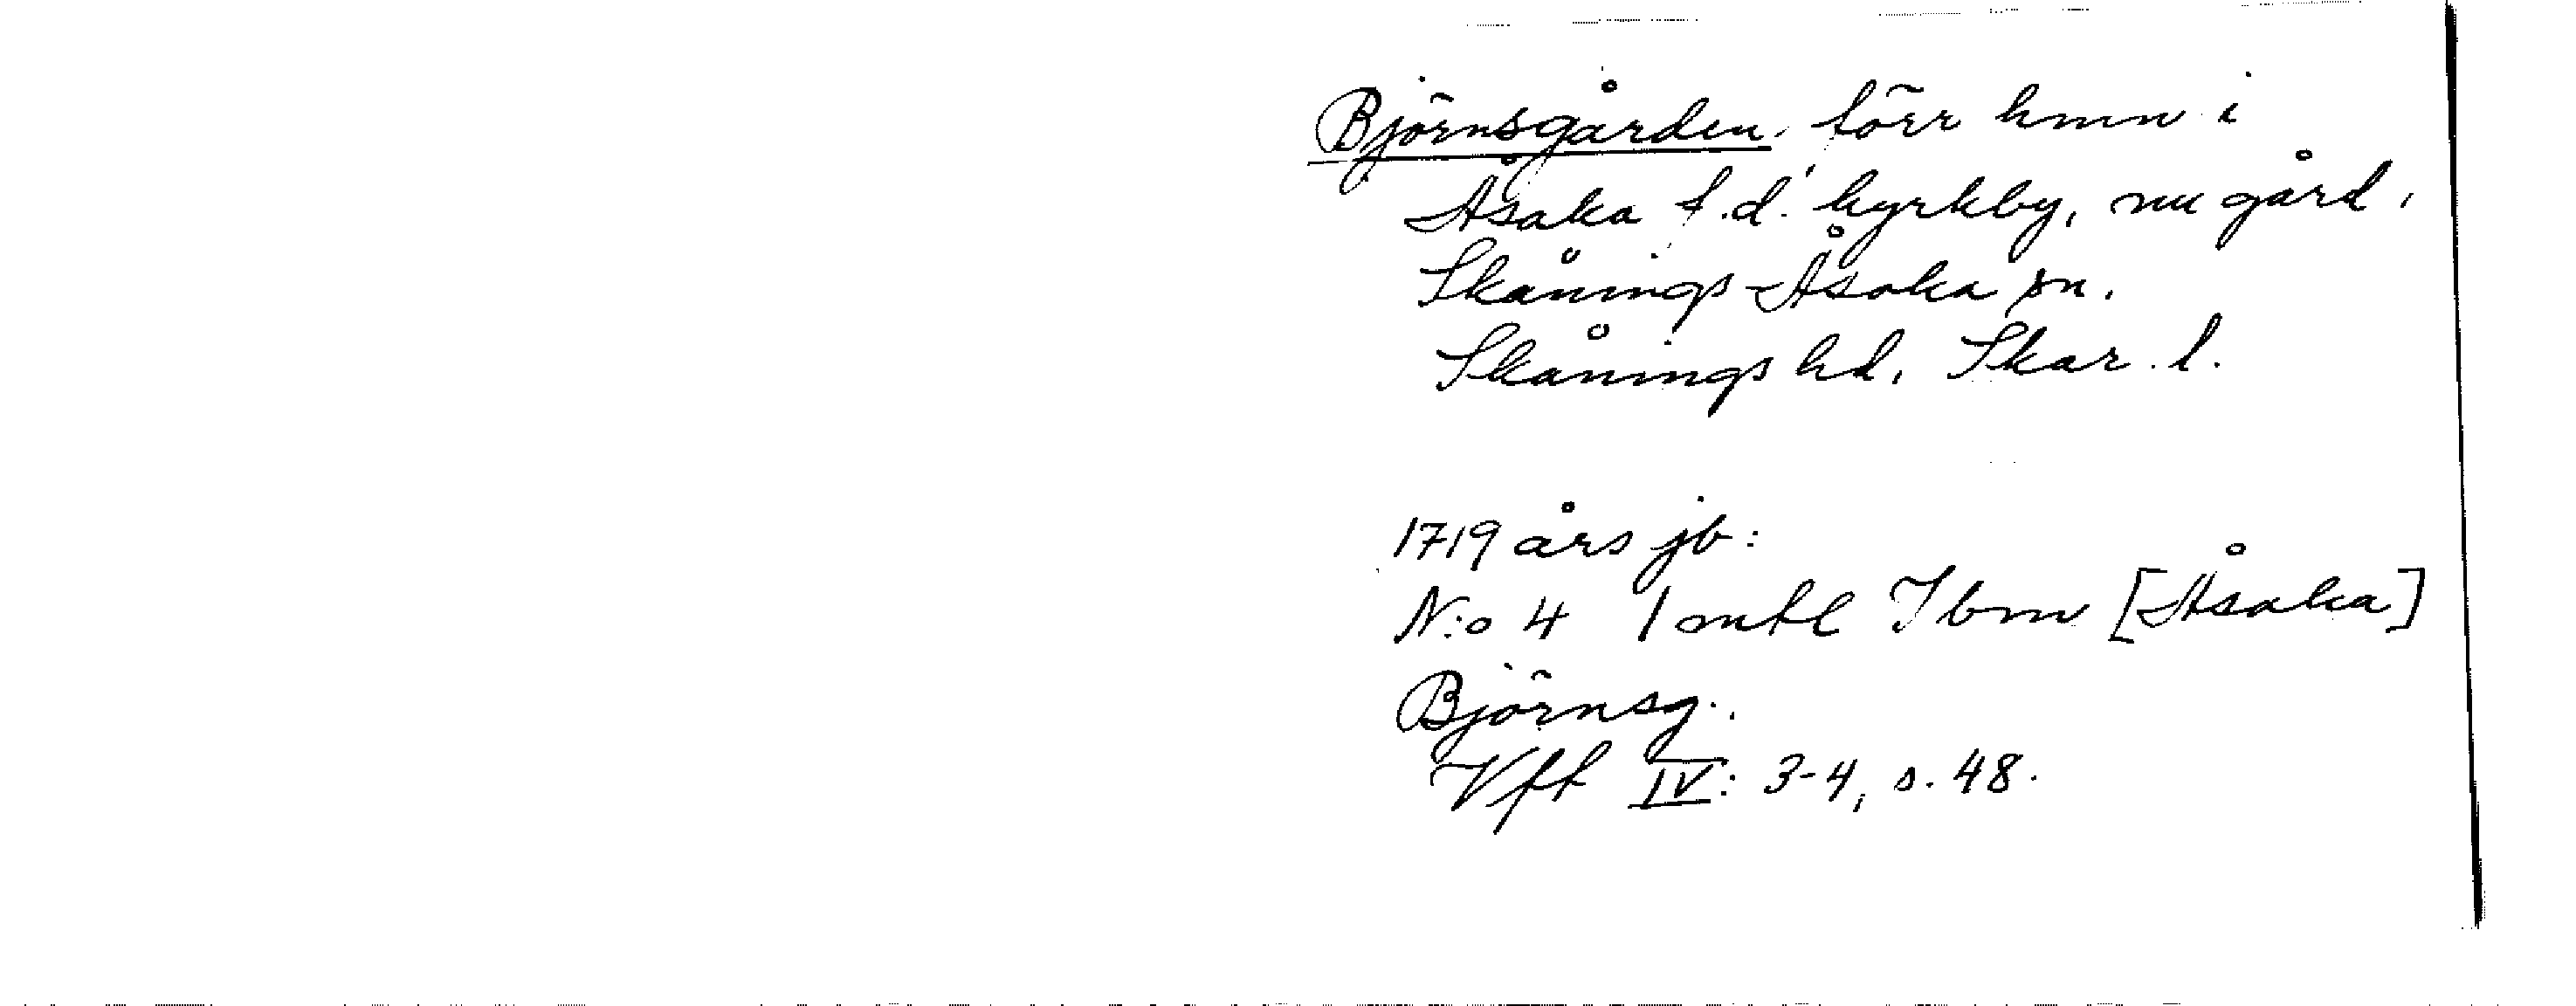 Björnsgården, förr hmn i
Åsaka f.d. kyrkby, nu gård,
Skånings-Åsaka sn.
Skånings hd, Skar. l.
1719 års jb:
N:o 4 1 mtl Ibm [Åsaka]
Björnsg..
Vft IV: 3-4, s. 48.